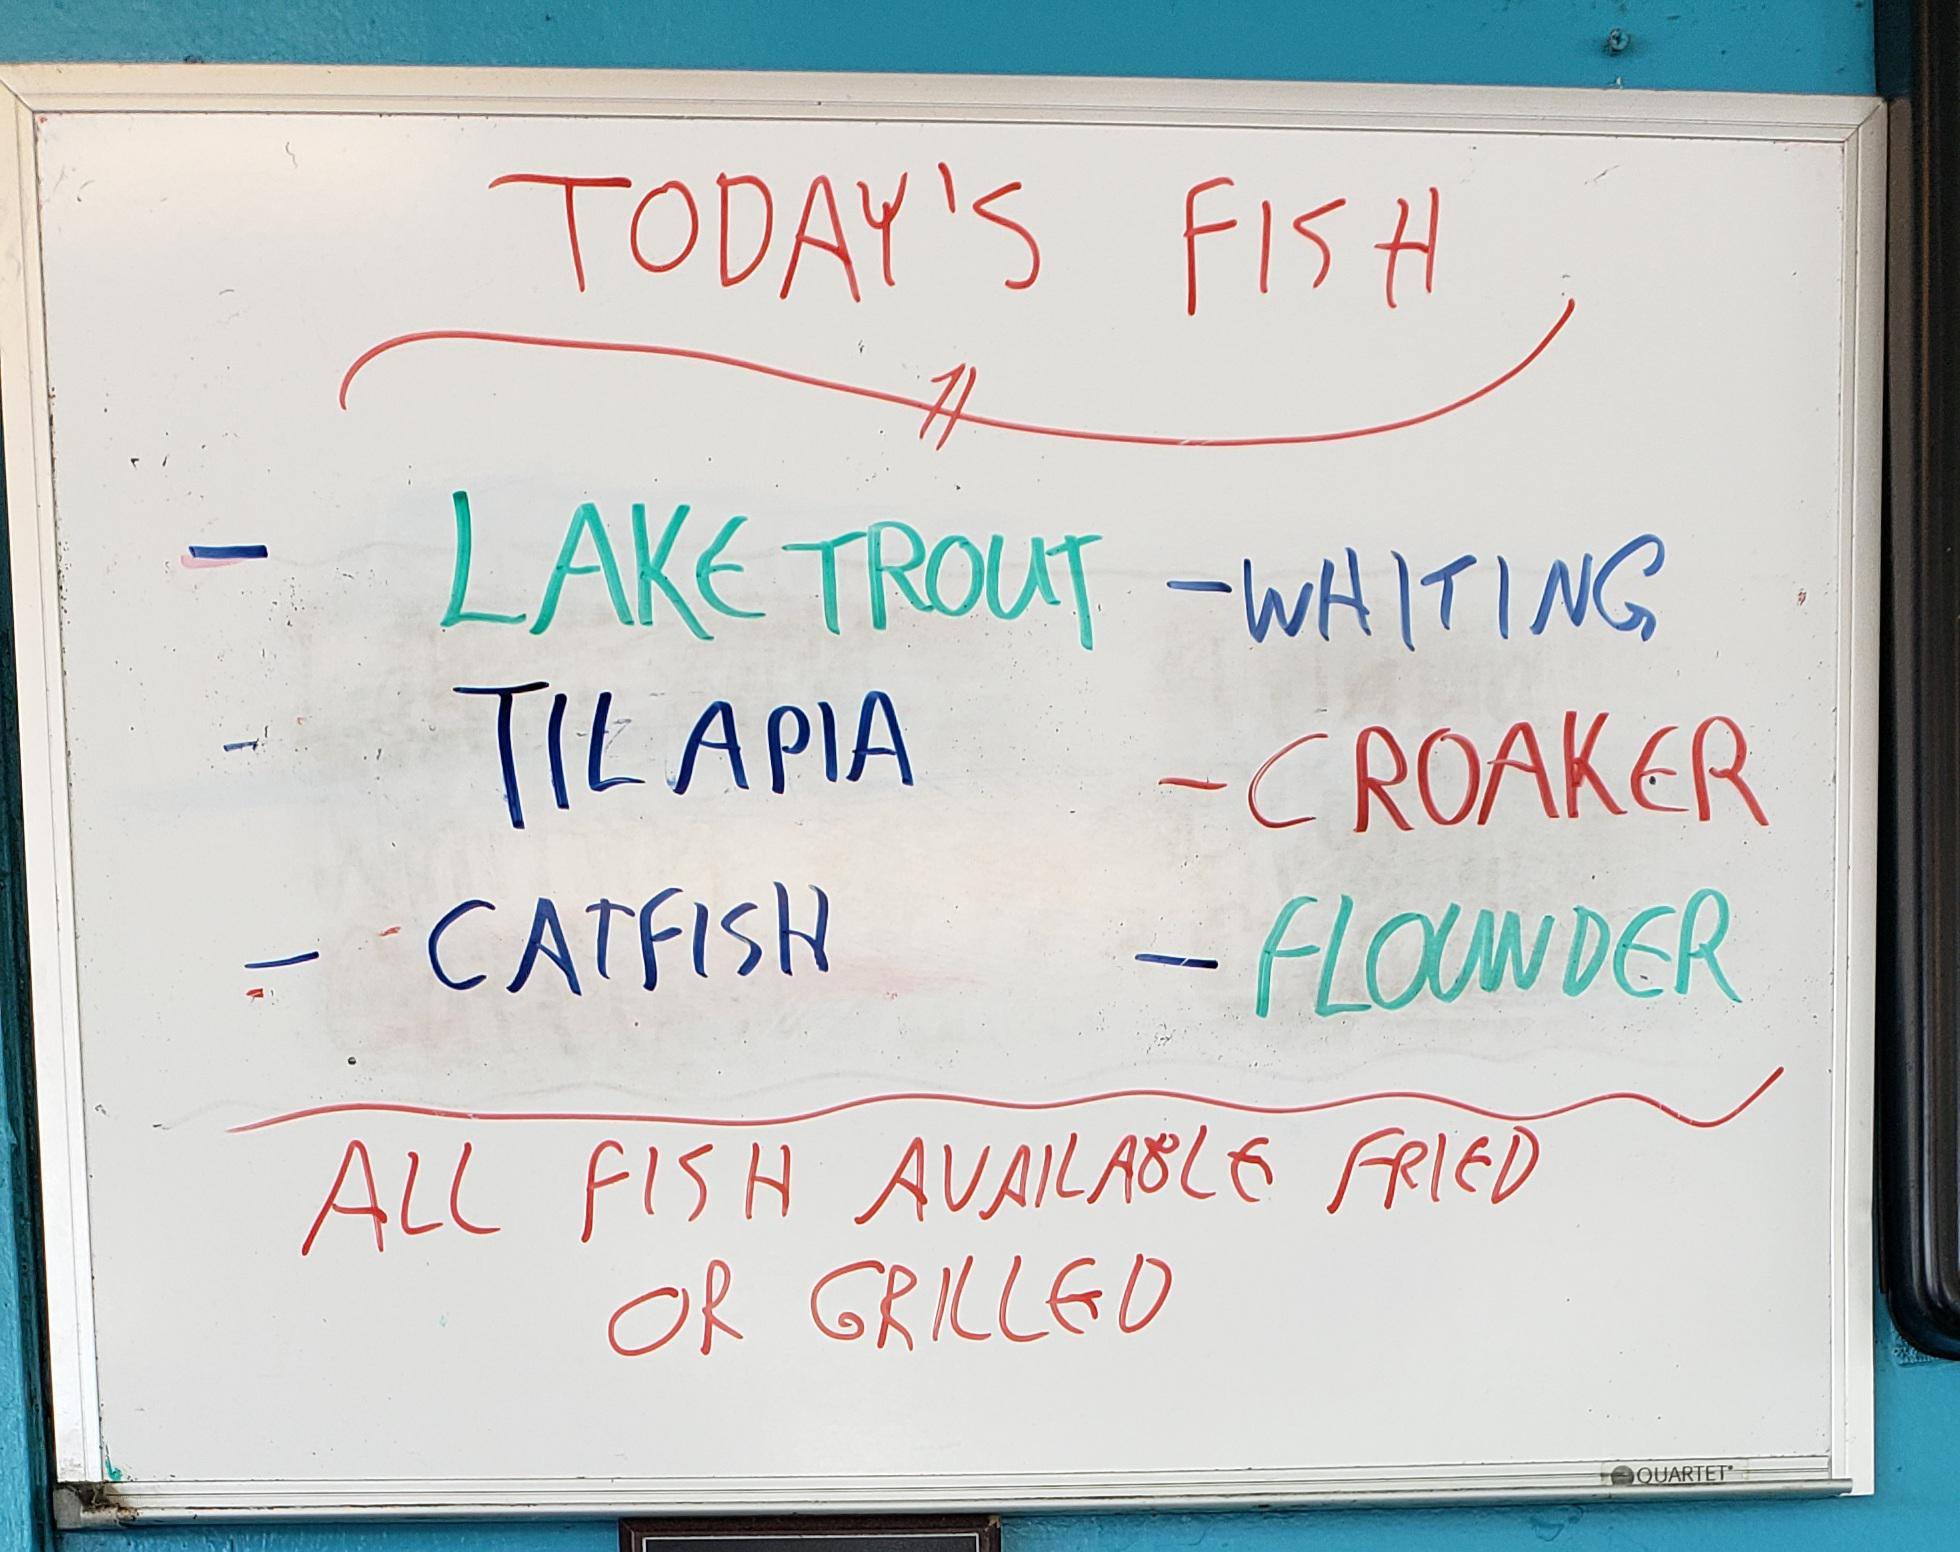 TODAY'S FISH
- LAKE TROUT - WHITING
- TILAPIA - CROAKER
- CATFISH - FLOUNDER
ALL FISH AVAILABLE FRIED
OR GRILLED
QUARTET